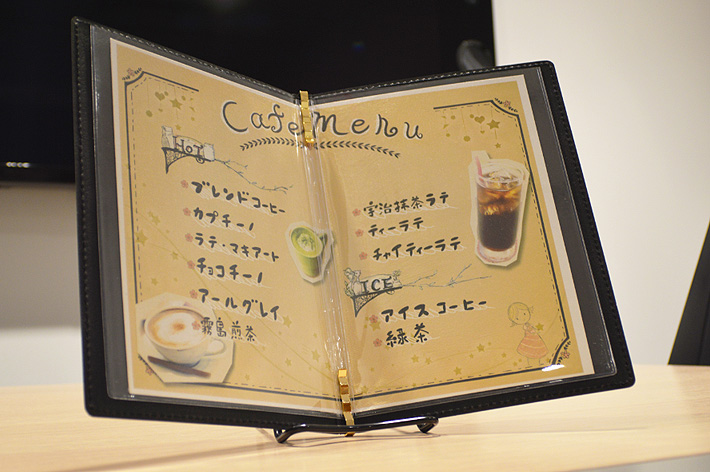 Cafe Menu
HOT
ブレンドコーヒー
カプチーノ
ラテ・マキアート
チョコチーノ
アールグレイ
霧島煎茶
宇治抹茶ラテ
ティーラテ
チャイティーラテ
ICE
アイスコーヒー
緑茶